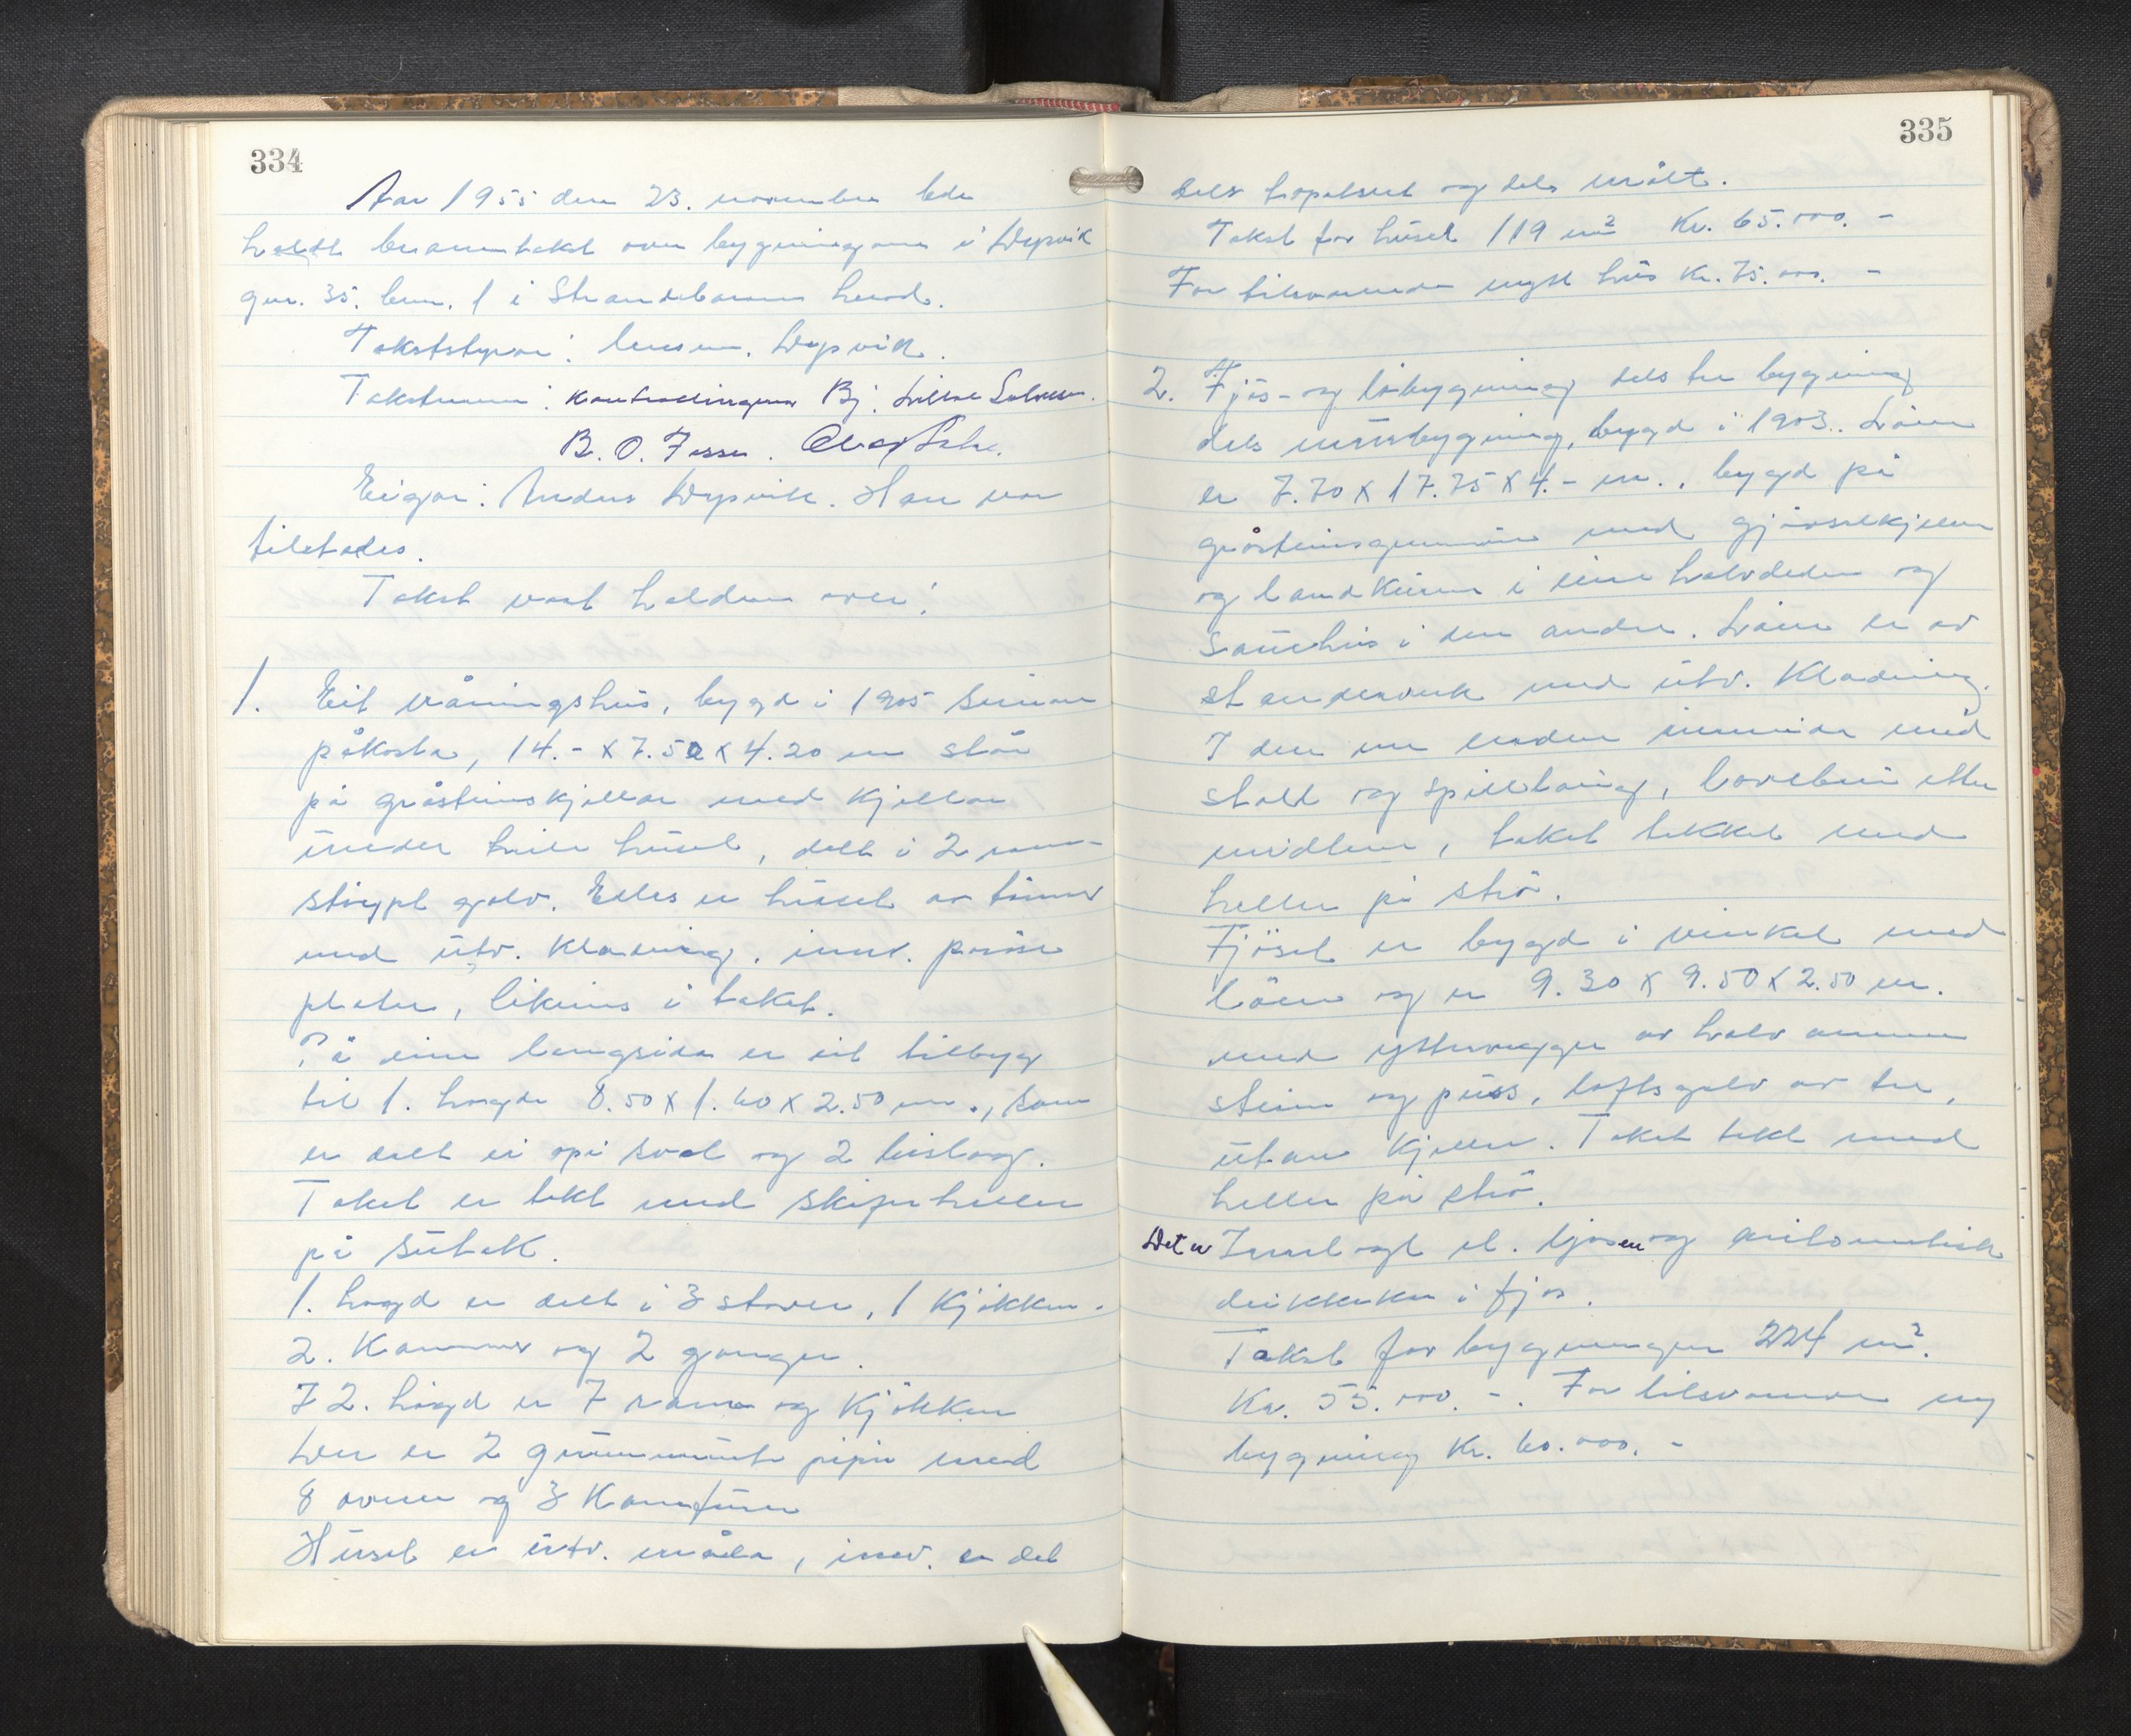 334
Aar 1955 den 23. november ble
holdt branntakst over bygningane i Dypvik
gnr. 35. bnr. 1 i Strandebarm herad.
Takststyrar: lensm. Dypvik.
Takstmenn: Bj.
B. O. Fosse.
Eigar: Anders Dypvik. Han var
tilstades.
Takst vart halden over:
1. Eit våningshus, bygd i 1905 seinare
påkosta, 14.- x 7.50 x 4.20 m står
på gråsteinskjellar med kjellar
under heile huset, delt i 2 rom
støypt golv. Elles er huset av tømmer
med utv. kledning, innv. porøse
plater, likeins i taket.
På eine langsida er eit tilbygg
til 1. høgda 8.50 x 1.60 x 2.50 m., som
er delt i opi sval og 2 bislag.
Taket er tekt med skiferheller
på sutak.
1. høgd er delt i 3 stover, 1 kjøkken.
2. kammer og 2 ganger.
I 2. høgd er 7 rom og kjøkken
Der er 2 grunnmurte piper med
8 ovner og 3 komfurer
Huset er utv. måla, innv. er det
335
dels trepalsert og dels målt.
Takst for huset 119 m² Kr. 65.000.-
For tilsvarende nytt hus kr. 75.000.-
2. Fjøs- og løbygning dels tre bygning
dels mursbygning, bygd i 1903. Løen
er 7.70 x 17.75 x 4.- m., bygd på
gråsteinsgrunnmur med gjødselkjellar
og landkum i eine halvdelen og
sauehus i den andre. Løen er av
standerverk med utv. kledning.
I den er innreia med
stall og spiltaug, lovebru etter
midten, taket tekket med
heller på strø.
Fjøset er bygd i vinkel med
løen og er 9.30 x 9.50 x 2.50 m.
med yttervegger av halv annen
stein og puss, loftsgolv av tre,
utan kjellar. Taket tekt med
heller på strø.
Det er Innlagt el. ljos en og automatisk
drikkekar i fjøs.
Takst for bygningen 224 m².
Kr. 55.000.-. For tilsvarende ny
bygning kr. 60.000.-